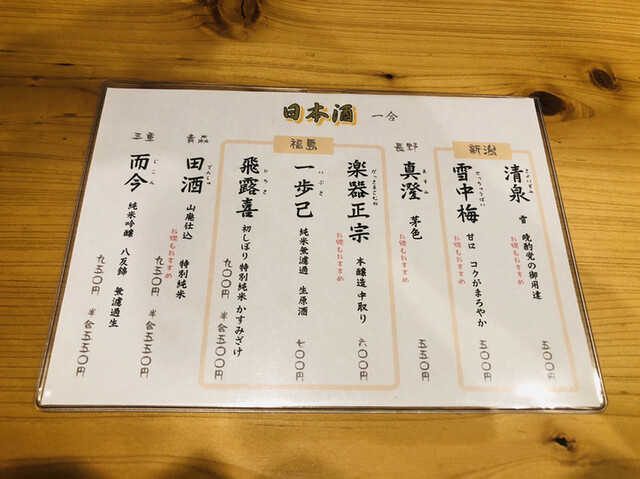 日本酒 一合
新潟
きよいずみ
清泉 雪 晩酌党の御用達 五〇〇円
お燗もおすすめ
せっちゅうばい
雪中梅 甘口 コクがまろやか 五〇〇円
お燗もおすすめ
長野
ますみ
真澄 茅色 五五〇円
お燗もおすすめ
福島
がっきまさむね
楽器正宗 本醸造中取り 六〇〇円
お燗もおすすめ
いぶき
一歩己 純米無濾過 生原酒 七〇〇円
ひろき
飛露喜 初しぼり 特別純米 かすみざけ 九〇〇円 半合五五〇円
青森
でんしゅ
田酒 山廃仕込 特別純米 九五〇円 半合五五〇円
お燗もおすすめ
三重
じこん
而今 純米吟醸 八反錦 無濾過生 九五〇円 半合五五〇円